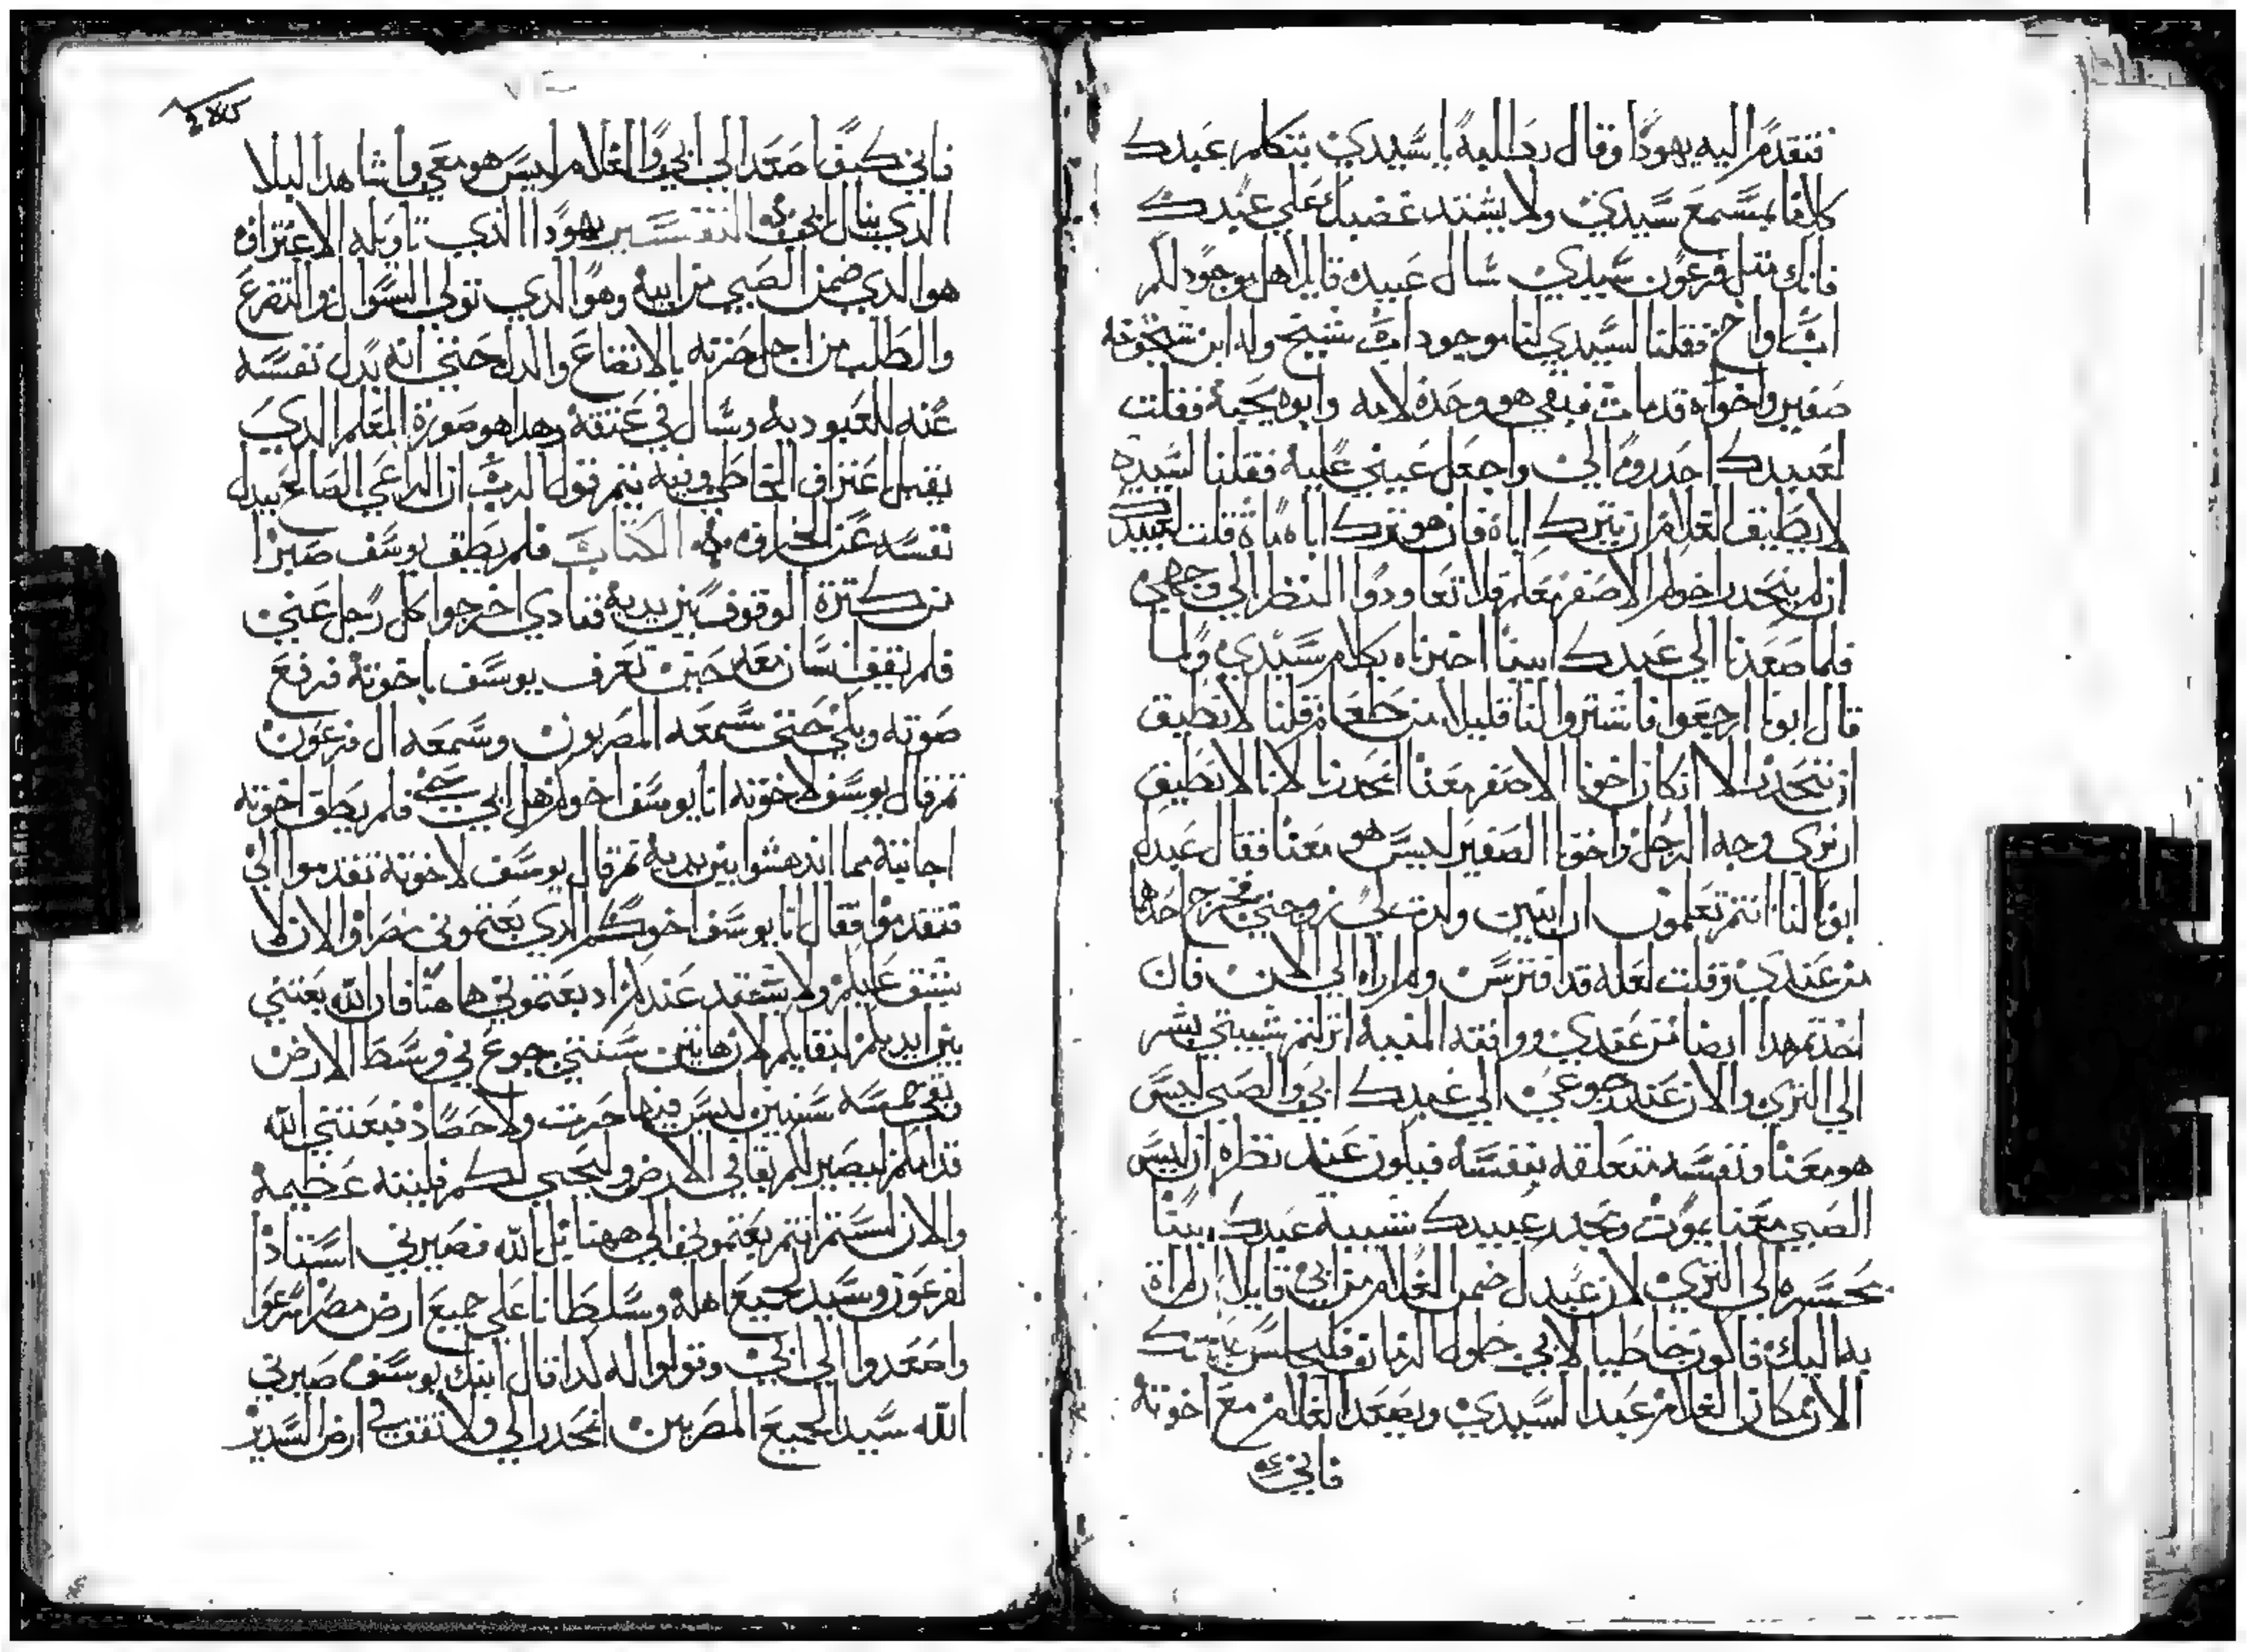 فتقدم اليه يهودا وقال بطلبة يا سيدي يتكلم عبدك
كلاما بمسمع سيدي ولا يشتد غضبك علي عبدك
فانك مثل فرعون سيدي سال عبيده قايلا هل موجود لكم
اب او اخ فقلنا لسيدي لنا موجود اب شيخ وله ابن شيخوخه
صغير واخوه قد مات فبقي هو وحده لامه وابوه يحبه فقلت
لعبيدك احدروه الي واجعل عيني عليه فقلنا لسيده
لا يطيق الغلام ان يترك اباه فان هو ترك اباه مات قلت لعبيدك
ان لم ينحدر اخوكم الاصغر معكم فلا تعاودوا النظر الي وجهي
فلما صعدنا الي عبدك ابينا اخبرناه بكلام سيدي ولما
قال ابونا ارجعوا فاشتروا لنا قليلا من طعام قلنا لا نطيق
ان ننحدر الا ان كان اخونا الاصغر معنا انحدرنا لانا لا نطيق
ان نري وجه الرجل واخونا الصغير ليس هو معنا فقال عبدك
ابونا لنا انتم تعلمون ان ابنين ولدت لي زوجتي فخرج احدها
من عندي وقلت لعله قد افترس ولم اراه الي الان فان
اخدتم هدا ايضا من عندي ووافته المنيه انزلتم شيبتي بشر
الي الثري والان عند رجوعي الي عبدك ابي والصبي ليس
هو معنا ونفسه متعلقه بنفسه فيكون عند نظره ان ليس
الصبي معنا يموت وتحدر عبيدك شيبة عبدك ابينا
بحسره الي الثري لان عبدك ضمن الغلام من ابي قايلا ان لم اراه
بدا اليك فاكون خاطيا لابي طول الزمان فليجلس عبدك
الان مكان الغلام عبدا لسيدي ويصعد الغلام مع اخوته
فاني
فاني كيف اصعد الي ابي والغلام ليس هو معي واشاهد البلا
الدي ينال ابي التفسير يهودا الدي تاويله الاعتراف
هو الدي ضمن الصبي من ابيه وهو الدي تولي السوال والتضرع
والطلب من اجل حضرته بالاتضاع والدل حتي انه بدل نفسه
عنه للعبوديه وسال في عتقه وهدا هو صورة المعلم الدي
يقبل اعتراف الخاطي وفيه يتم قول الرب ان الراعي الصالح يبدل
نفسه عن الخراف الكتاب فلم يطق يوسف صبرا
من كثرة الوقوف بين يديه فنادي اخرجوا كل رجل عني
فلم يقف انسان معه حين تعرف يوسف باخوته فرفع
صوته وبكي حتي سمعه المصريون وسمعه ال فرعون
ثم قال يوسف لاخوته انا يوسف اخوكم هل ابي حي فلم يطق اخوته
اجابته مما اندهشوا بين يديه ثم قال يوسف لاخوته تقدموا الي
فتقدموا فقال انا يوسف اخوكم الدي بعتموني مصر والان لا
يشق عليكم ولا يشتد عندكم اد بعتموني هاهنا فان الله بعتني
بين ايديكم لبقايكم لان هاتين سنتي جوع في وسط الارض
وبقي خمسه سنين ليس فيها حرت ولا حصاد فبعتني الله
قدامكم ليصير لكم بقا في الارض وليحيي لكم فليته عظيمه
والان لستم انتم بعتموني الي ههنا بل الله فصيرني استاذا
لفرعون وسيد لجميع اهله وسلطانا علي جميع ارض مصر اسرعوا
واصعدوا الي ابي وقولوا له كدا قال ابنك يوسف صيرني
الله سيد الجميع المصريين انحدر الي ولا تقف في ارض السدير